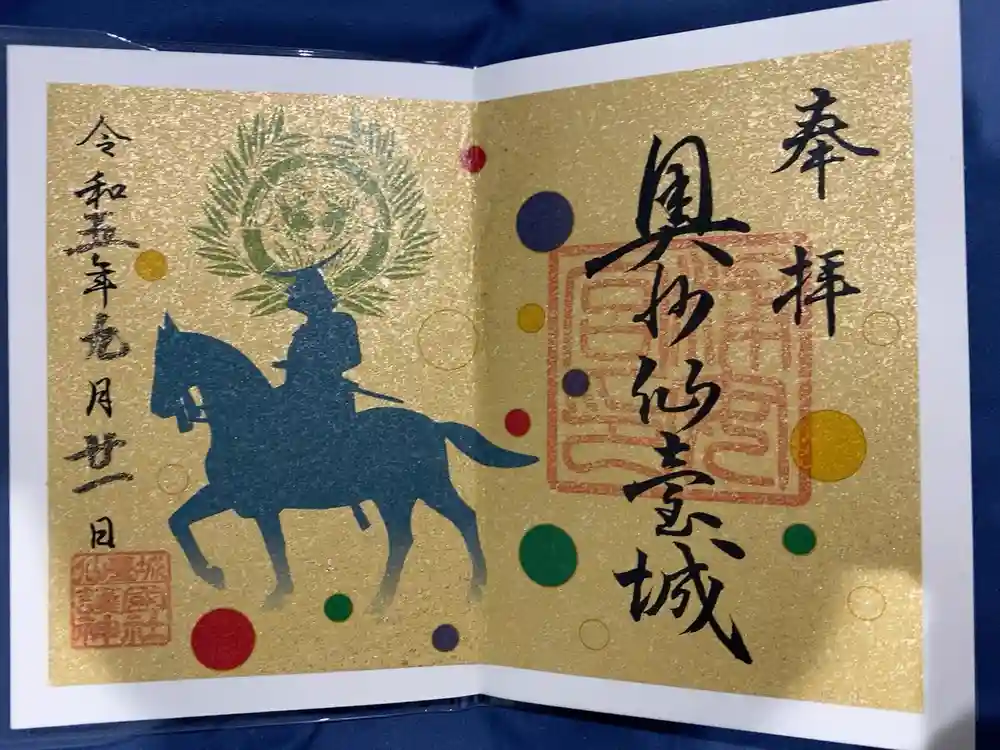 奉拝
奥州仙臺城
令和五年九月廿一日